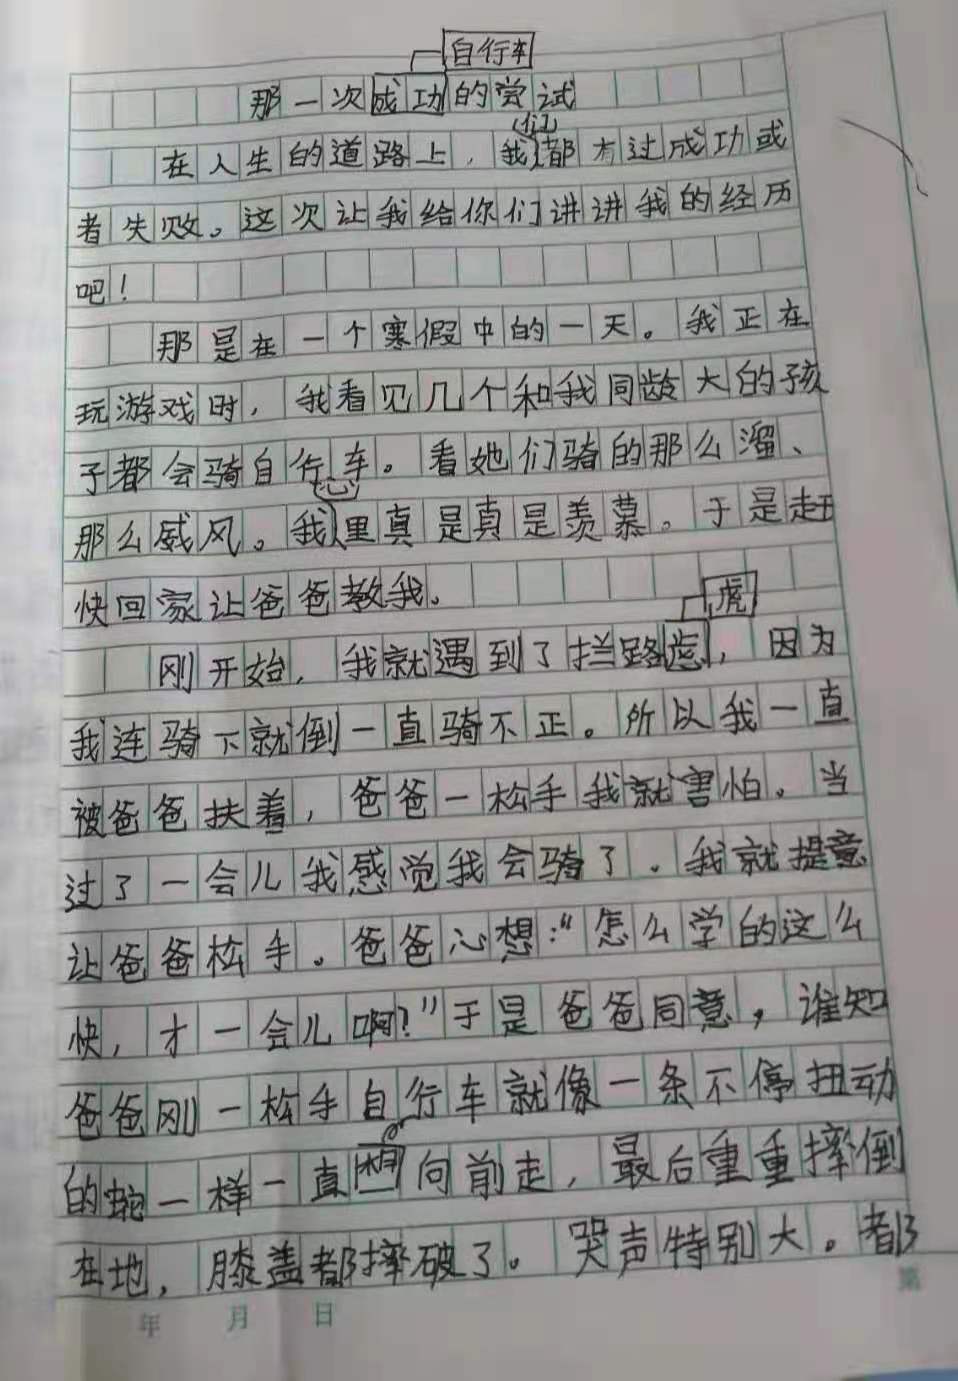 自行车
那一次成功的尝试
们
在人生的道路上，我都有过成功或
者失败。这次让我给你们讲讲我的经历
吧！
那是在一个寒假中的一天。我正在
玩游戏时，我看见几个和我同龄大的孩
子都会骑自行车。看她们骑的那么溜、
心
那么威风。我里真是真是羡慕。于是赶
快回家让爸爸教我。
虎
刚开始，我就遇到了拦路虑，因为
我连骑下就倒一直骑不正。所以我一直
被爸爸扶着，爸爸一松手我就害怕。当
过了一会儿我感觉我会骑了。我就提意
让爸爸松手。爸爸心想：“怎么学的这么
快，才一会儿啊？”于是爸爸同意，谁知
爸爸刚一松手自行车就像一条不停扭动
的蛇一样一直向前走，最后重重摔倒
在地，膝盖都摔破了。哭声特别大。都
年 月 日 第